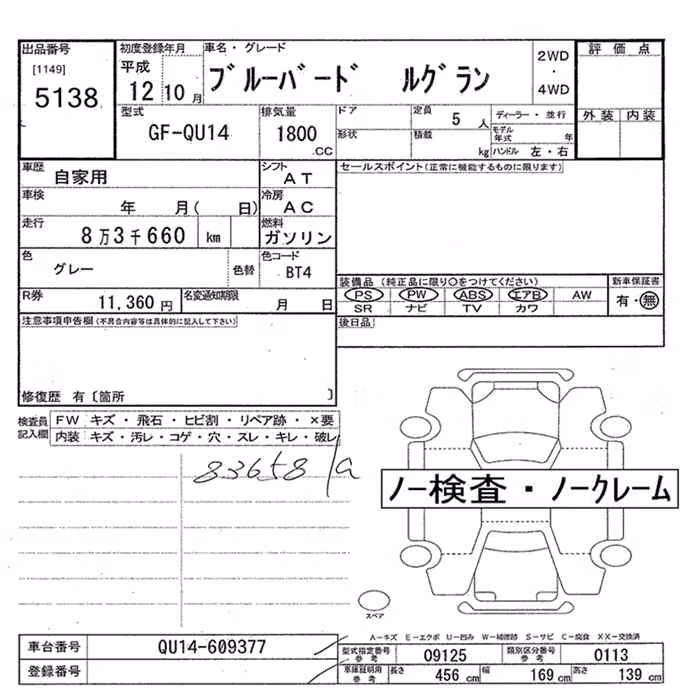 出品番号
[1149]
5138
初度登録年月
平成
12 10 月
車名・グレード
ブルーバード ルグラン
2WD
・
4WD
評価点
外装 内装
型式
GF-QU14
排気量
1800
.CC
ドア
形状
定員 5 人
積載 kg
ディーラー・並行
モデル年式 年
ハンドル 左・右
車歴
自家用
シフト
AT
車検
年 月( 日)
冷房
AC
走行
8万3千660 km
燃料
ガソリン
色
グレー
色替
色コード
BT4
R券
11,360 円
名変通知期限
月 日
セールスポイント(正常に機能するものに限ります)
装備品 (純正品に限り○をつけてください)
新車保証書
PS PW ABS エアB AW
SR ナビ TV カワ
有・無
後日品
注意事項申告欄(不具合内容等は具体的に記入して下さい)
修復歴 有〔箇所 〕
検査員
記入欄
FW キズ・飛石・ヒビ割・リペア跡・×要
内装 キズ・汚レ・コゲ・穴・スレ・キレ・破レ
83658
ノー検査・ノークレーム
スペア
A-キズ E-エクボ U-凹み W-補修跡 S-サビ C-腐食 XX-交換済
車台番号
QU14-609377
登録番号
型式指定番号
参考
09125
類別区分番号
参考
0113
車庫証明用
参考
長さ 456 cm
幅 169 cm
高さ 139 cm